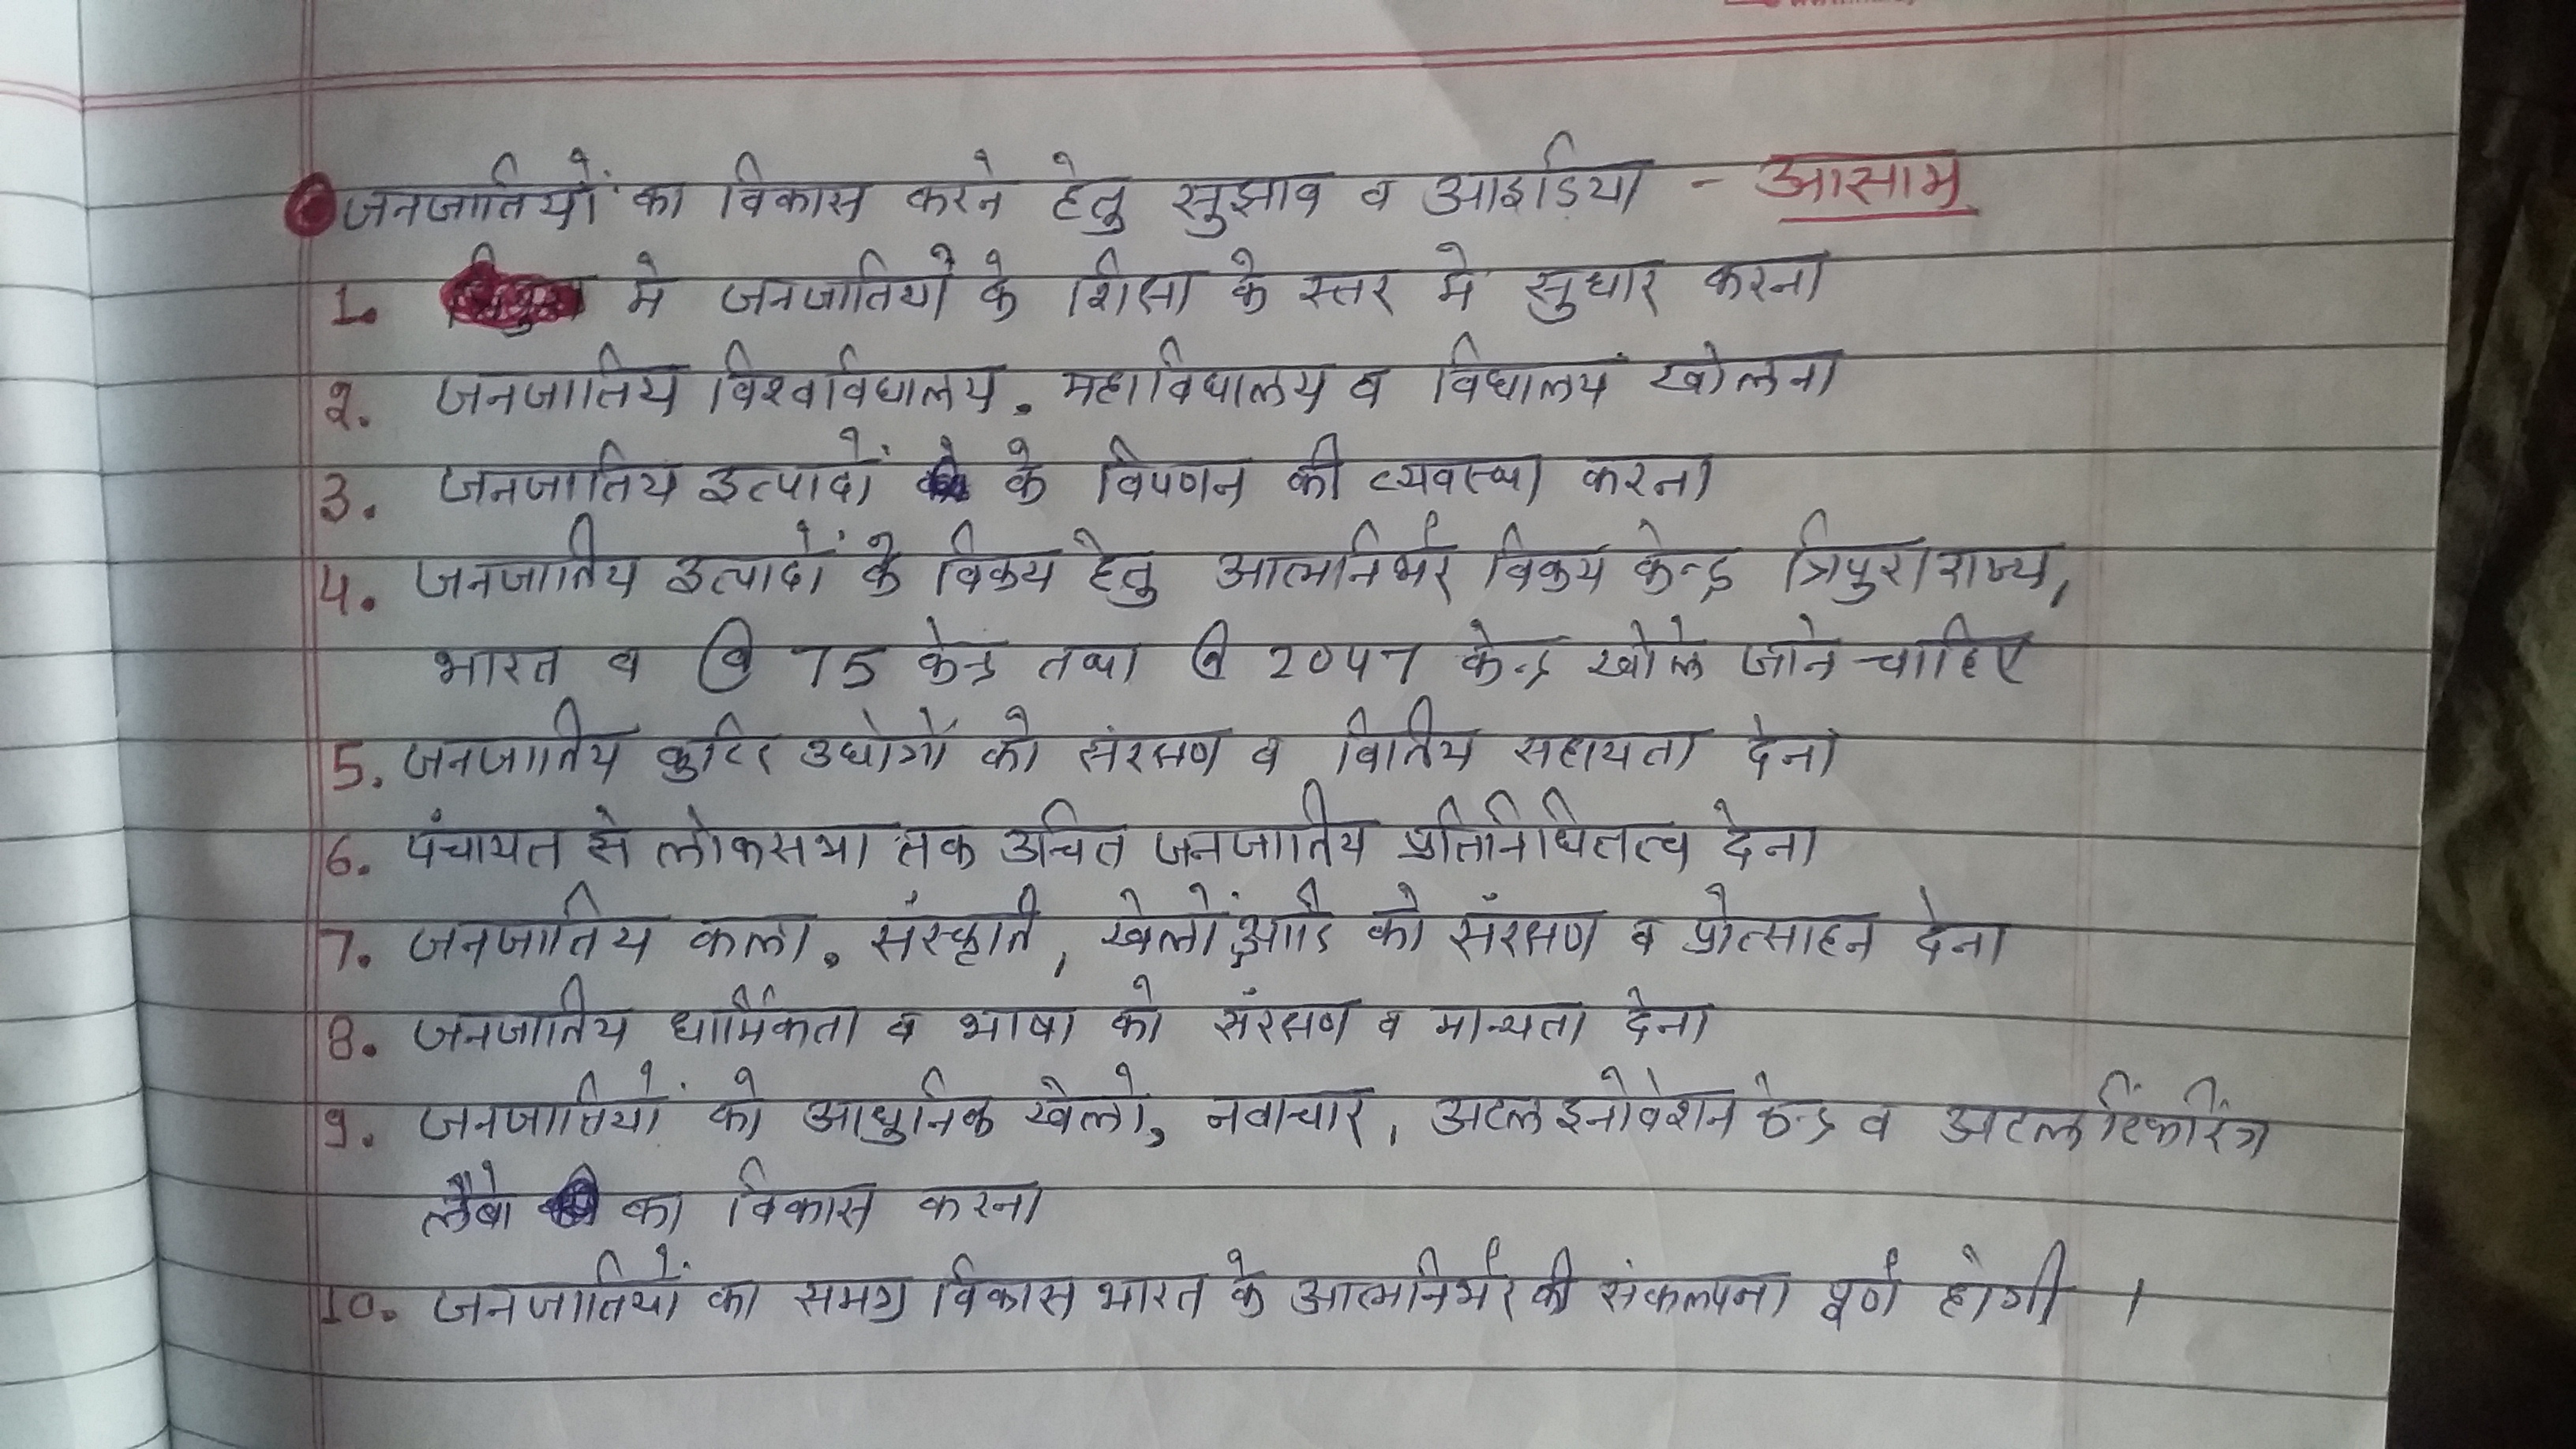 जनजातियों का विकास करने हेतु सुझाव व आइडिया - आसाम
1. मे जनजातियो के शिक्षा के स्तर मे सुधार करना
2. जनजातिय विश्वविद्यालय, महाविद्यालय व विद्यालय खोलना
3. जनजातिय उत्पादों के विपणन की व्यवस्था करना
4. जनजातीय उत्पादों के विक्रय हेतु आत्मनिर्भर विक्रय केन्द्र त्रिपुरा राज्य,
भारत व @ 75 केन्द्र तथा @ 2047 केन्द्र खोले जाने चाहिए
5. जनजातीय कुटिर उद्योगों को संरक्षण व वित्तिय सहायता देना
6. पंचायत से लोकसभा तक उचित जनजातीय प्रतिनिधितत्व देना
7. जनजातिय कला, संस्कृति, खेलों आदि को संरक्षण व प्रोत्साहन देना
8. जनजातीय धार्मिकता व भाषा को संरक्षण व मान्यता देना
9. जनजातियों को आधुनिक खेलो, नवाचार, अटल इनोवेशन केन्द्र व अटल टिंकरिंग
लैबो का विकास करना
10. जनजातियों का समग्र विकास भारत के आत्मनिर्भर की संकल्पना पूर्ण होगी ।